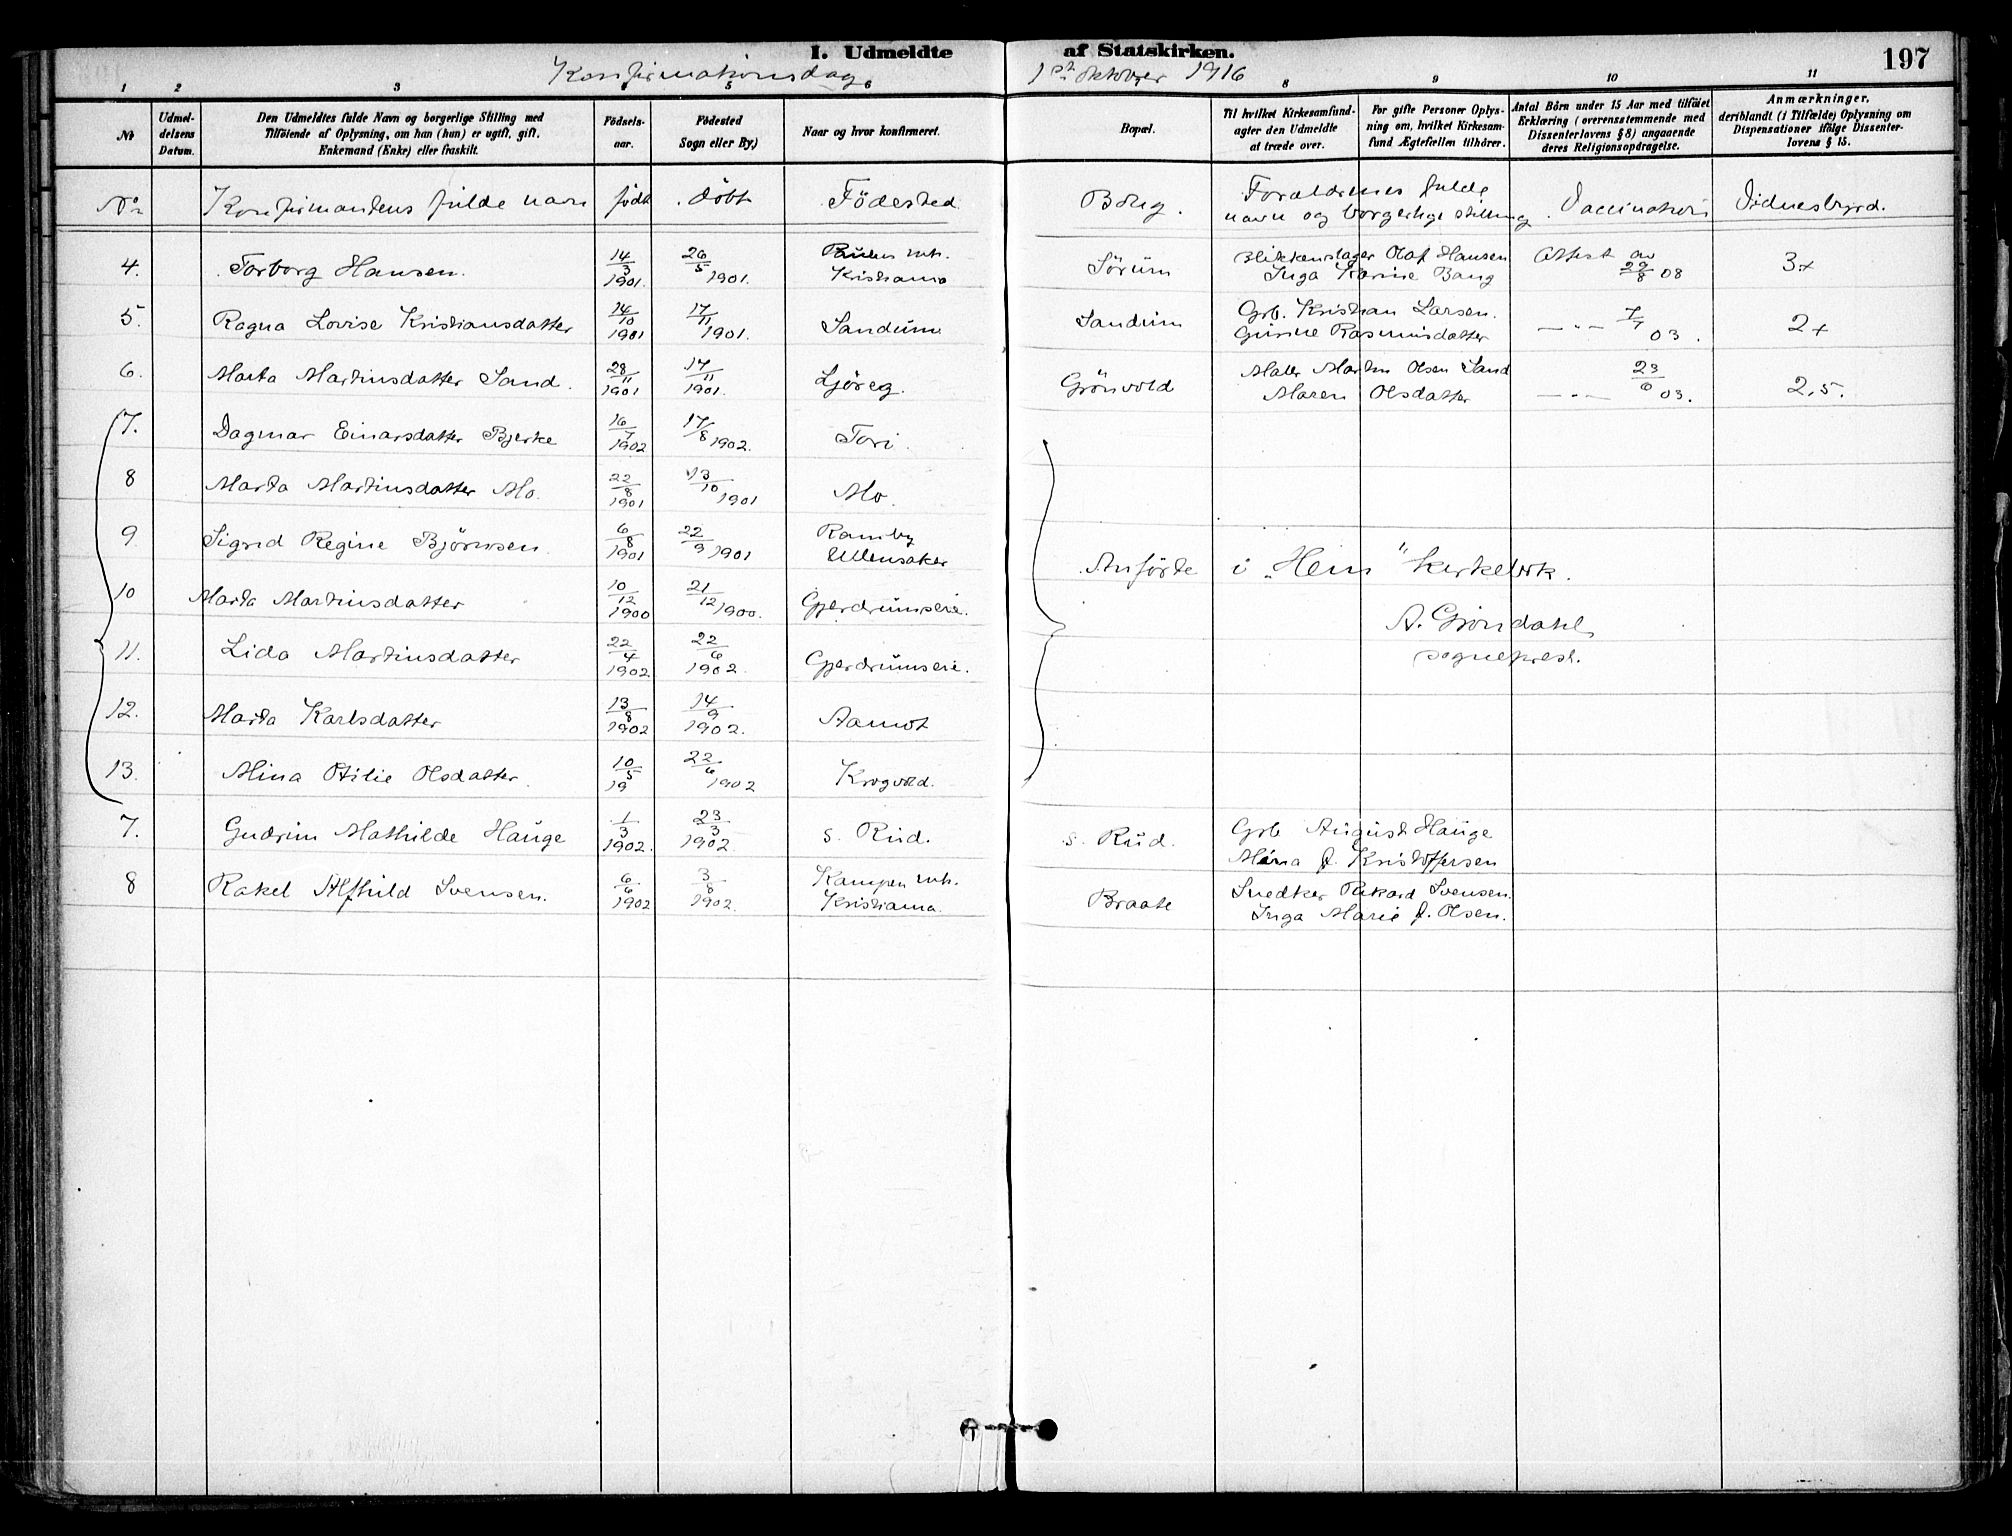 I. Udmeldte af Statskirken. 197
Konfirmationsdag 1st oktober 1916
1 2 3 4 5 6 8 9 10 11
No
Udmeldelsens Datum.
Den Udmeldtes fulde Navn og borgerlige Stilling med
Tilføiende af Oplysning, om han (hun) er ugift, gift.
Enkemand (Enke) eller fraskilt.
Fødselsaar.
Fødested
Sogn eller By.)
Naar og hvor konfirmeret.
Bopæl.
Til hvilket Kirkesamfund-
agter den Udmeldte
at træde over.
For gifte Personer Oplys-
ning om, hvilket Kirkesam-
fund Ægtefællen tilhører.
Antal Børn under 15 Aar med tilføiet
Erklæring (overensstemmende med
Dissenterlovens § 8) angaaende
deres Religionsopdragelse.
Anmærkninger,
deriblandt (i Tilfælde) Oplysning om
Dispensationer ifølge Dissenter-
lovens § 15.
No Konfirmantens fulde navn født døbt Fødested Bolig. Forældrenes fulde
navn og borgerlige stilling Vaccination Vidnesbyrd.
4. Torborg Hansen. 14/3 1901. 26/5 1901. mh.
Kristiania Sørum Blikkenslager Olaf Hansen
Inga Karine Bang Attest av 29/8 08 3+
5. Ragna Lovise Kristiansdatter 14/10 1901 17/11 1901. Sandum Sandum Grb. Kristian Larsen.
Gurine Rasmusdatter —"— 7/7 03. 2+
6. Marta Martinsdatter Sand. 28/11 1901 17/11 1901. Ljøreg. Grønvold Maler Martin Olsen Sand
Maren Olsdatter —"— 23/6 03. 2,5.
7. Dagmar Einarsdatter Bjerke 16/7 1902 17/8 1902. Tori.
8 Marta Martinsdatter Mo. 22/8 1901 13/10 1901 Mo.
9. Sigrid Regine Bjørnsen. 6/8 1901 22/9 1901 Ramby
Ullensaker
Anførte i "Heni" kirkebok.
10 Marta Martinsdatter 10/12 1900 21/12 1900. Gjerdrumseie.
A. Grøndahl
sogneprest.
11. Lida Martinsdatter 22/4 1902 22/6 1902. Gjerdrumseie.
12. Marta Karlsdatter 13/8 1902 14/9 1902. Aamot
13. Mina Otilie Olsdatter. 10/5 19 22/6 1902 Krogvold.
7. Gudrun Mathilde Hauge 1/3 1902. 23/3 1902. s. Rud. s. Rud. Grb August Hauge
Mina f. Kristoffersen
8 Rakel Alfhild Svensen. 6/6 1902 3/8 1902. Kampen mh.
Kristiania. Braate Snedker Rikard Svensen.
Inga Marie f. Olsen.